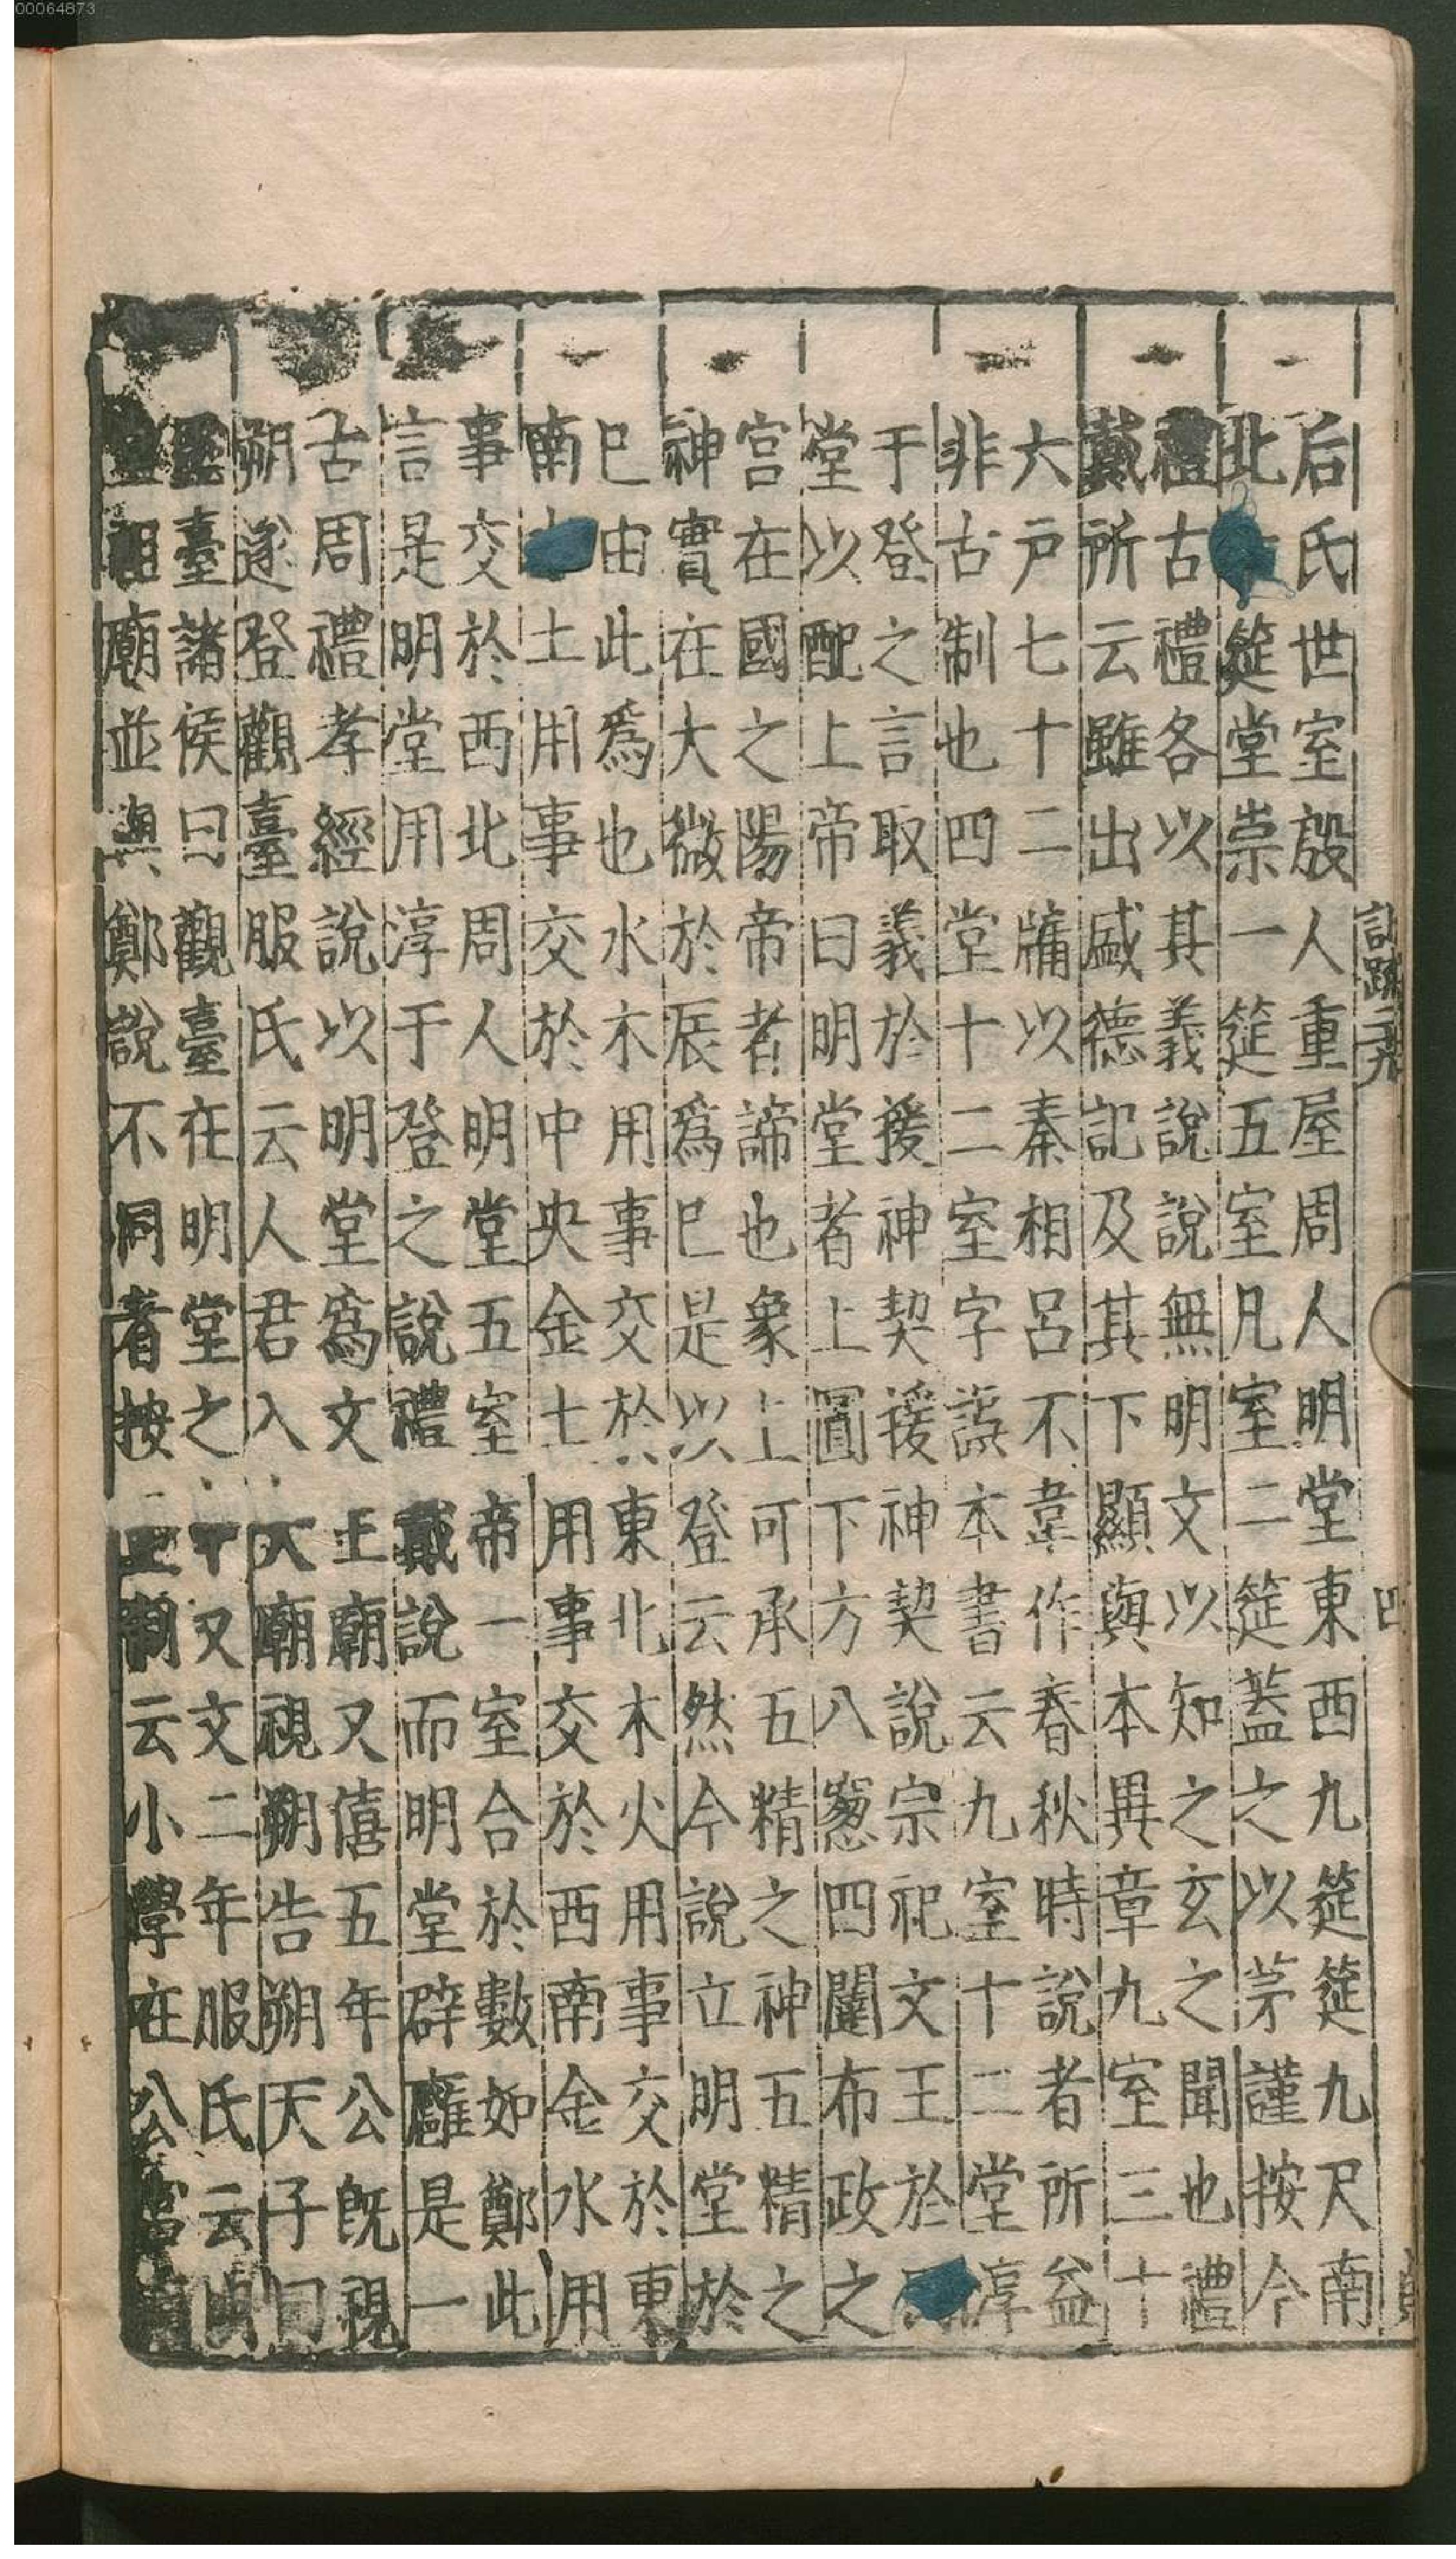 00064873
后氏世室殷人重屋周人明堂東西九筵筵九尺南
北筵堂崇一筵五室凡室二筵蓋之以茅謹按今
禮古禮各以其義說說無明文以知之玄之聞也禮
戴所云雖出盛德記及其下顯與本異章九室三十
六戶七十二牖以秦相呂不韋作春秋時說者所益
非古制也四堂十二室字誤本書云九室十二堂淳
于登之言取義於援神契援神契說宗祀文王於
堂以配上帝曰明堂者上圓下方八窻四闥布政之
宮在國之陽帝者諦也象上可承五精之神五精之
神實在大微於辰爲巳是以登云然今說立明堂於
巳由此爲也水木用事交於東北木火用事交於東
南土用事交於中央金土用事交於西南金水用
事交於西北周人明堂五室帝一室合於數如鄭此
言是明堂用淳于登之說禮戴說而明堂辟廱是一
古周禮孝經說以明堂爲文王廟又僖五年公旣視
朔遂登觀臺服氏云人君入大廟視朔告朔天子曰
靈臺諸侯曰觀臺在明堂之中又文二年服氏云明
堂祖廟並與鄭說不同者按王制云小學在公宮
記疏二九
四